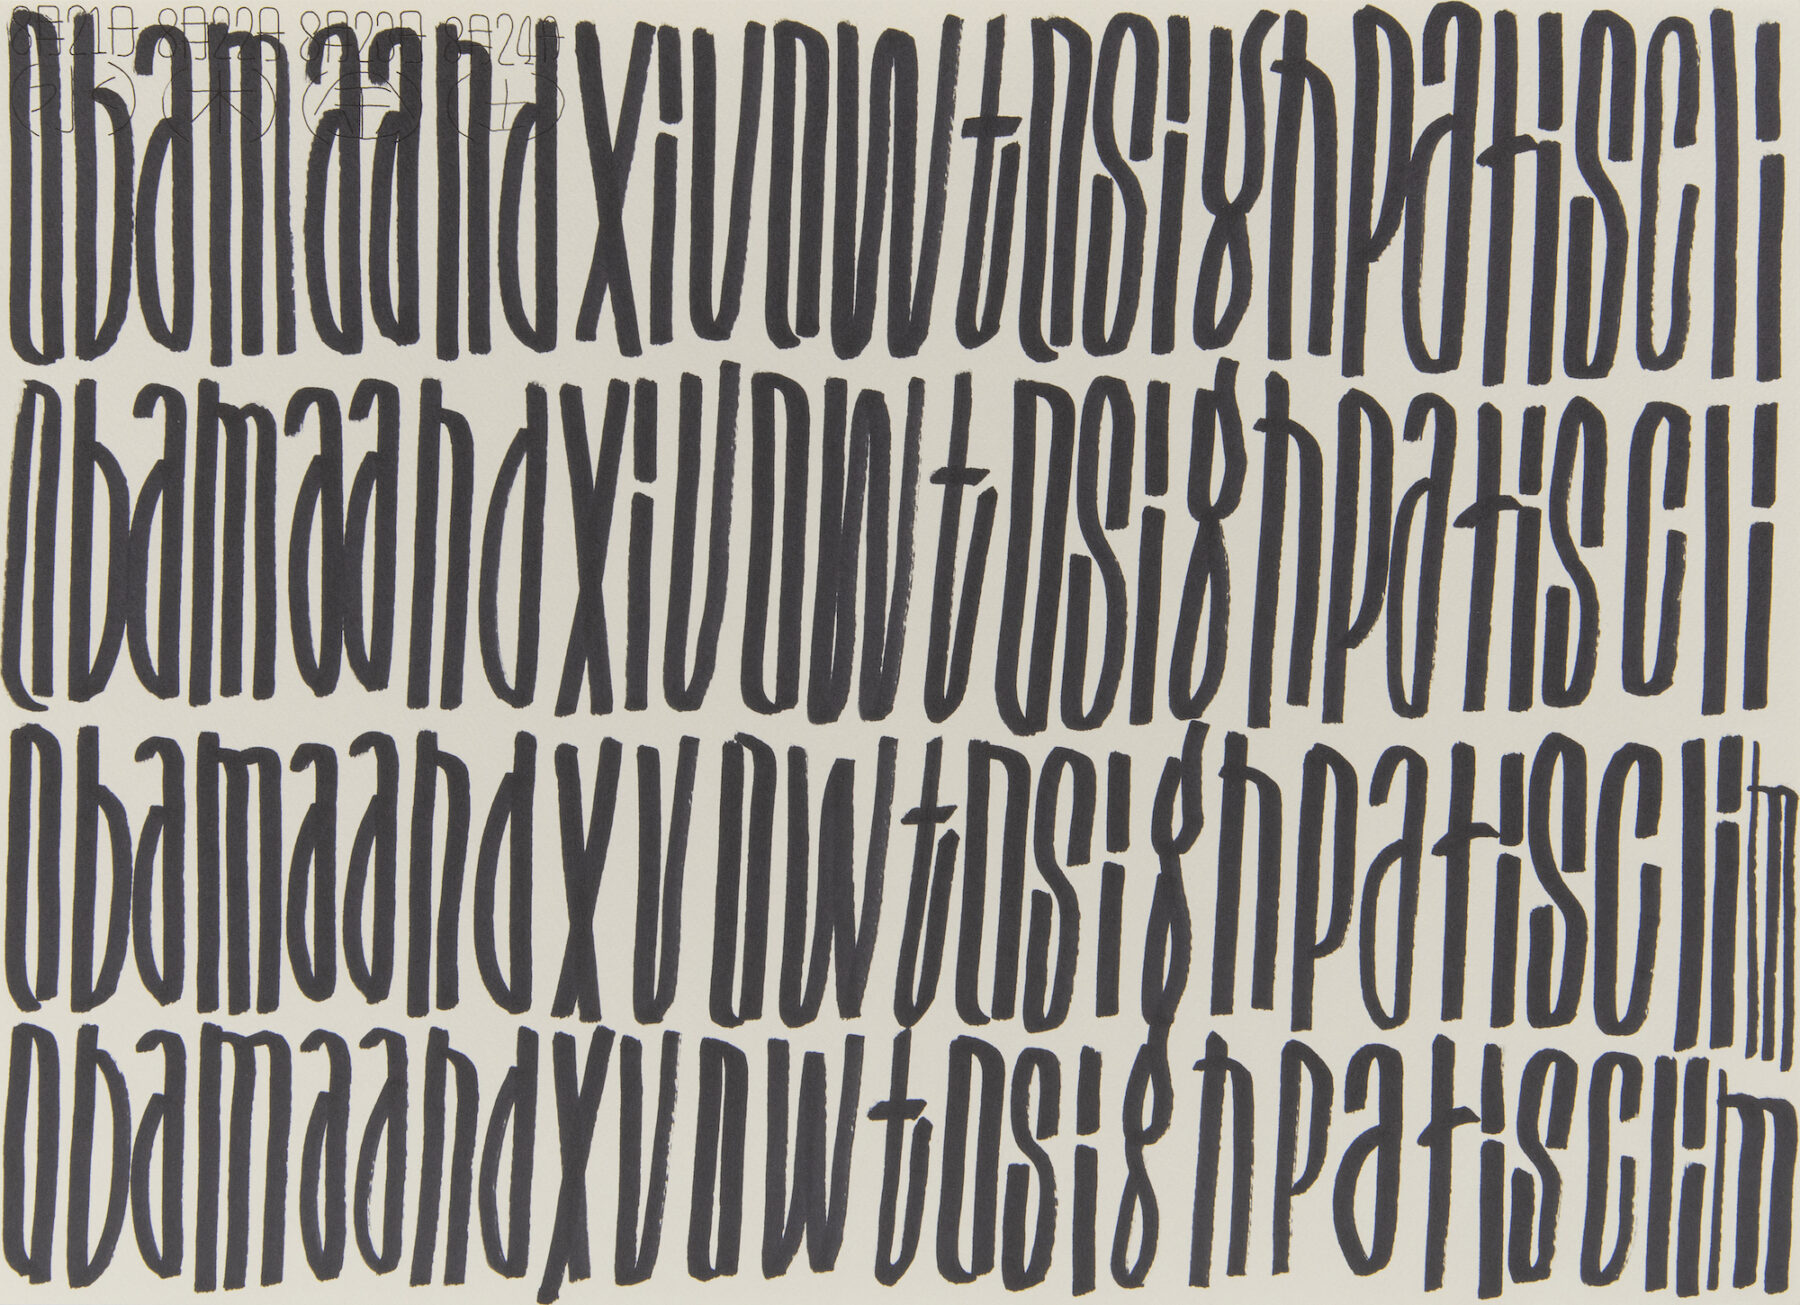 8月21日 8月22日 8月23日 8月24日
(水) (木) (金) (土)
obamaandxivowtosignpariscli
obamaandxivowtosignpariscli
obamaandxvowtosignparisclim
obamaandxvowtosignparisclim